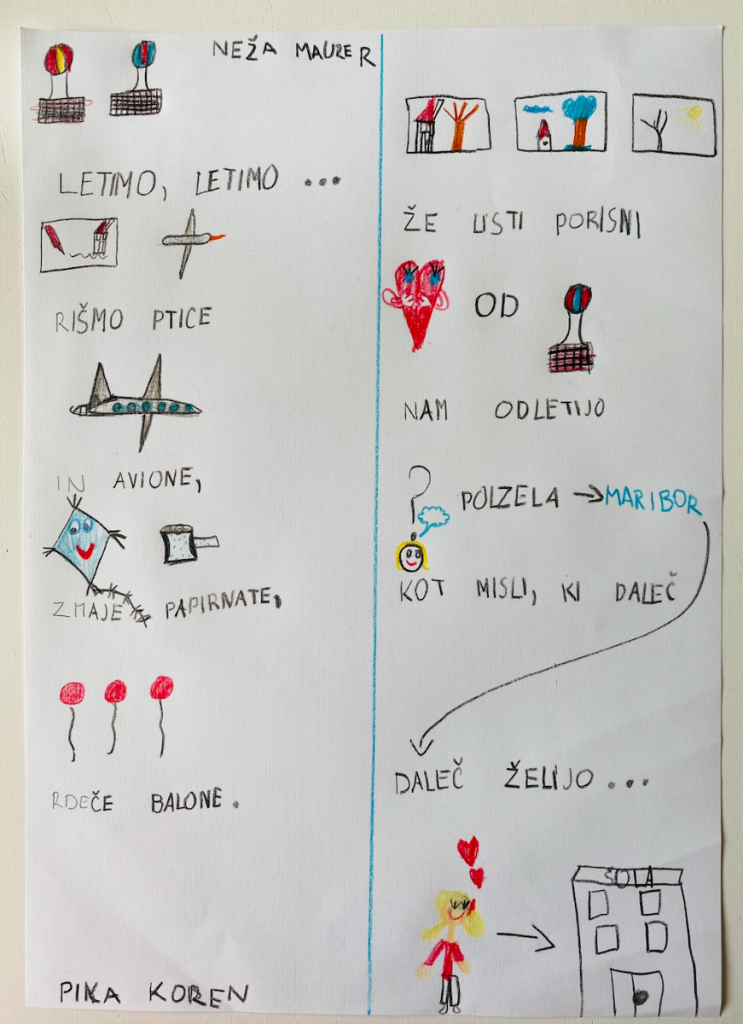 NEŽA MAURER
LETIMO, LETIMO ...
RIŠMO PTICE
IN AVIONE,
ZMAJE PAPIRNATE,
RDEČE BALONE.
PIKA KOREN
ŽE LISTI PORISNI
OD
NAM ODLETIJO
? POLZELA → MARIBOR
KOT MISLI, KI DALEČ
DALEČ ŽELIJO ...
ŠOLA